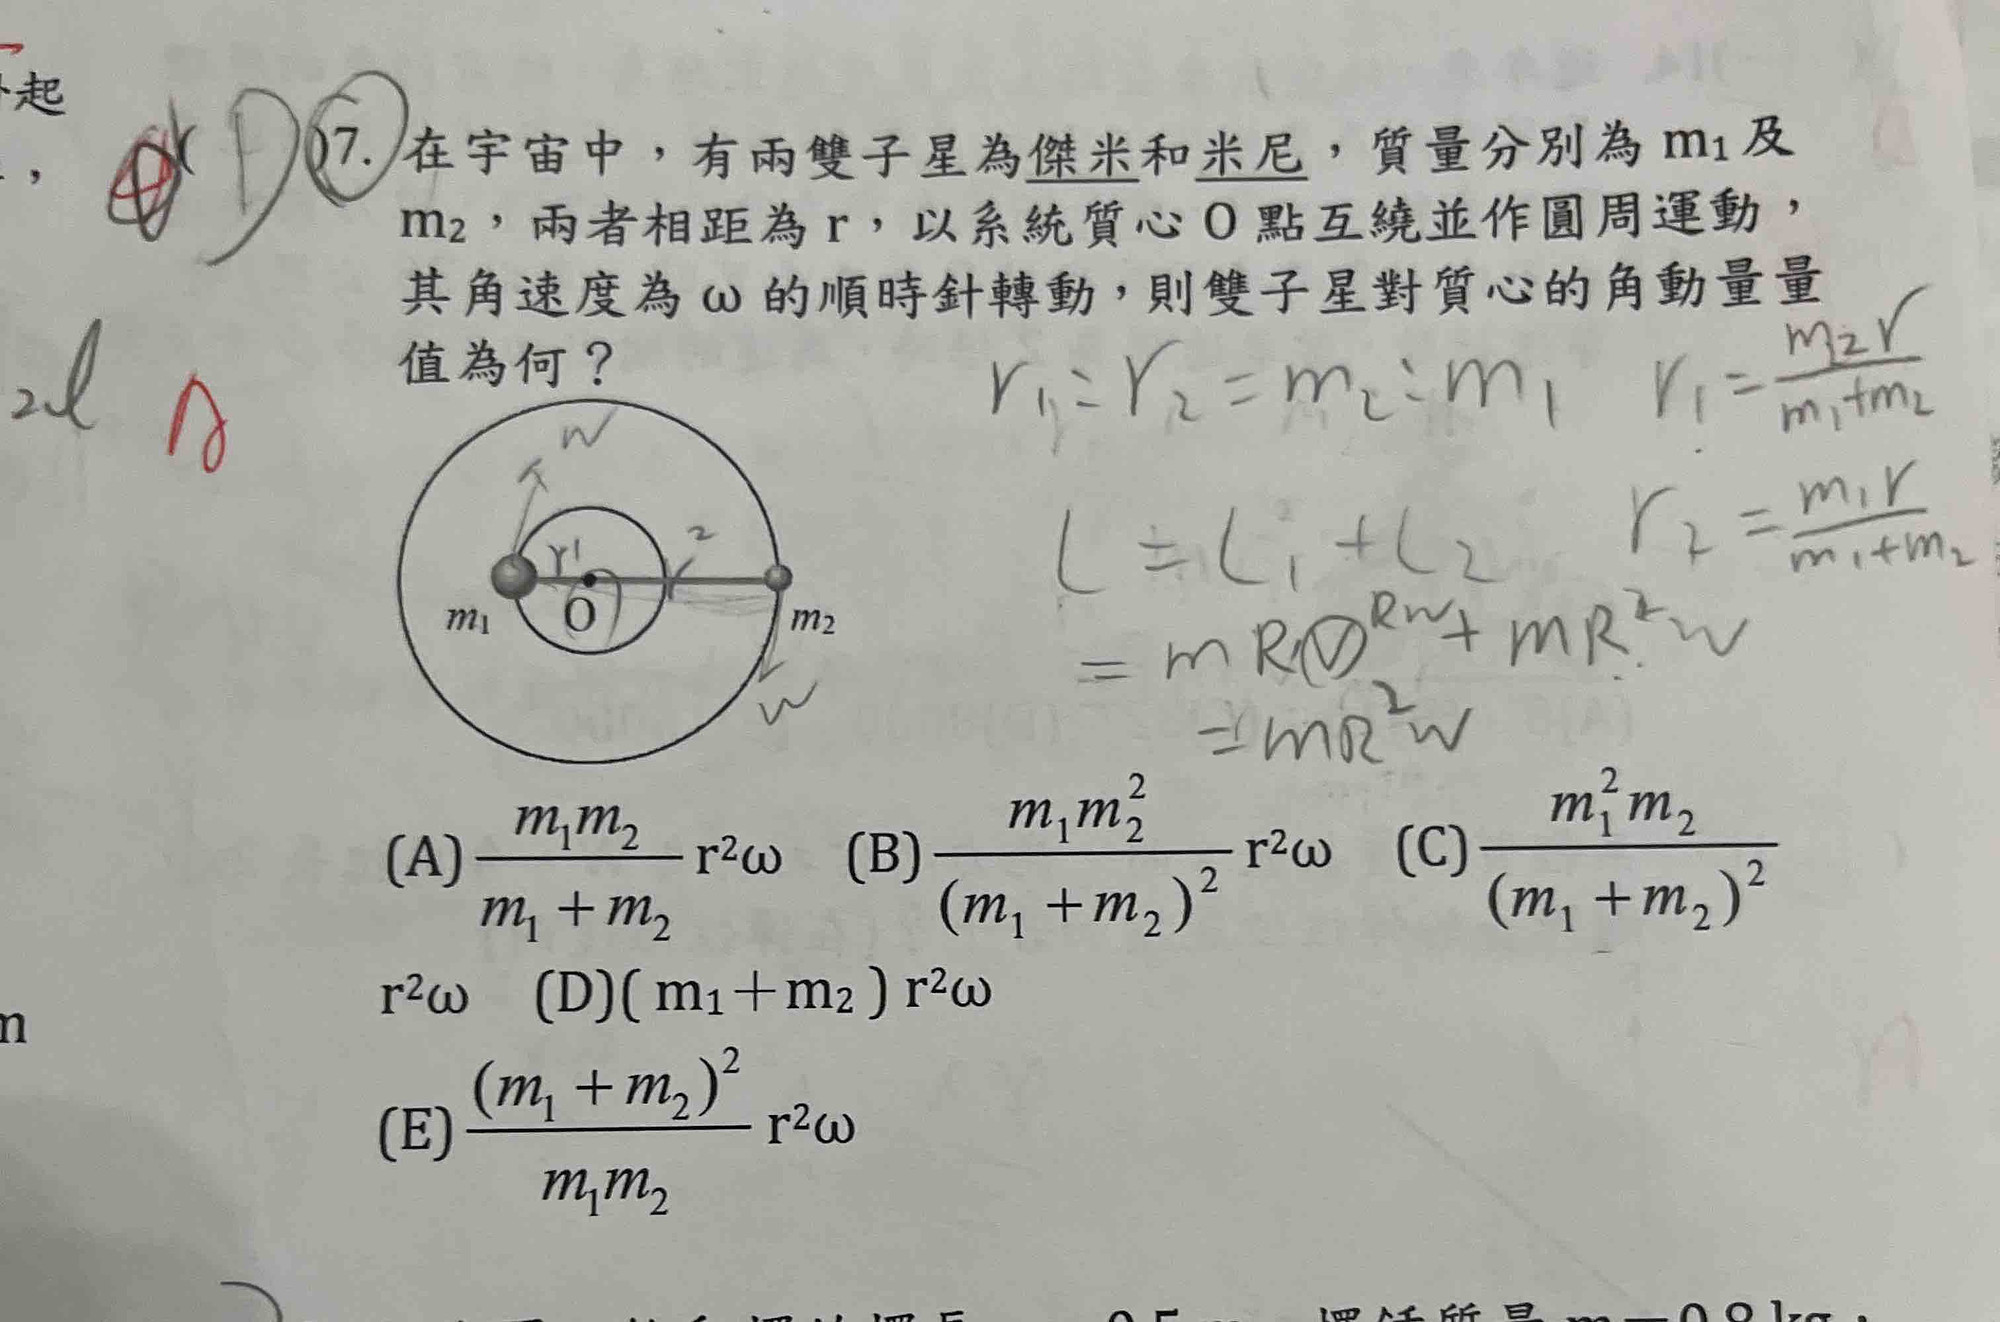 起
D
7. 在宇宙中，有兩雙子星為傑米和米尼，質量分別為 m₁ 及
m₂，兩者相距為 r，以系統質心 O 點互繞並作圓周運動，
其角速度為 ω 的順時針轉動，則雙子星對質心的角動量量
值為何？
r₁:r₂=m₂:m₁ r₁=m₂r/(m₁+m₂)
₂l A
w
r₁ r₂
m₁ O m₂
w
L=L₁+L₂ r₂=m₁r/(m₁+m₂)
=mRⓥ Rw+mR²w
=mR²w
(A) m₁m₂/(m₁+m₂) r²ω (B) m₁m₂²/(m₁+m₂)² r²ω (C) m₁²m₂/(m₁+m₂)²
r²ω (D)(m₁+m₂) r²ω
n
(E) (m₁+m₂)²/m₁m₂ r²ω